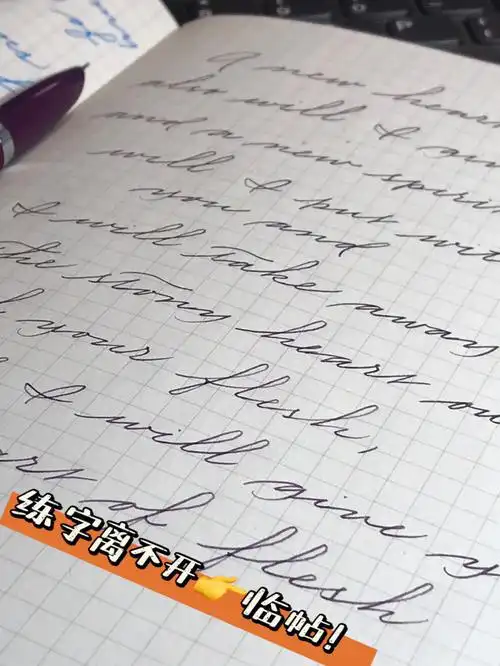 A new hear
also will I giv
and a new spiri
will I put wit
you and
I will take away
the stony heart ou
your flesh,
I will give y
art of flesh
练字离不开👉临帖!